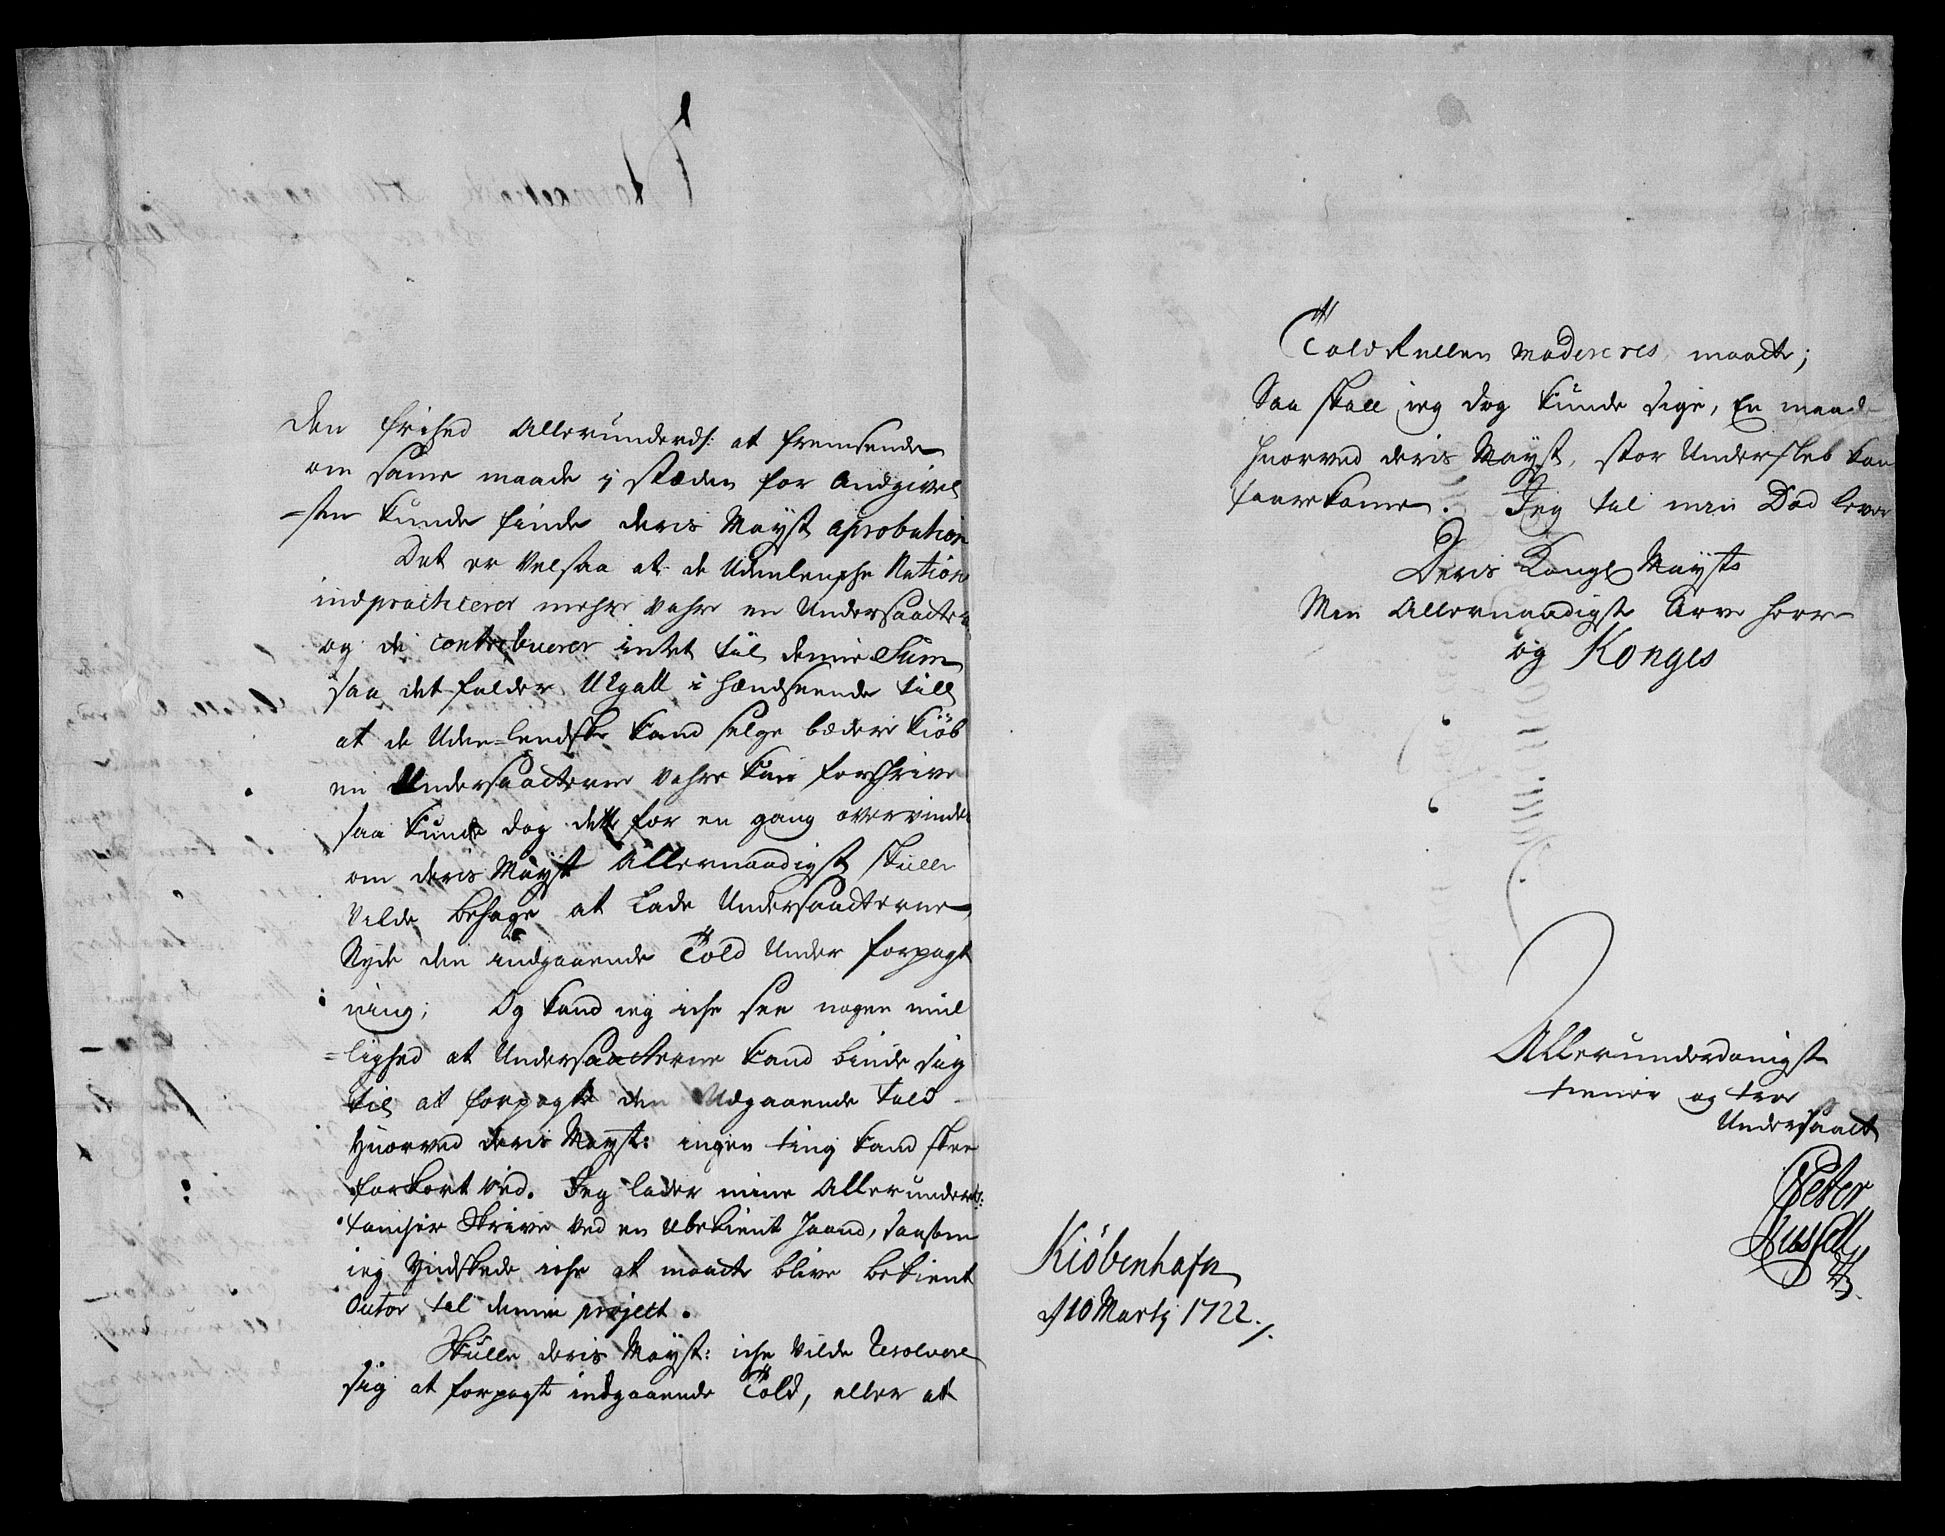 den frihed Allerunderd: at fremsende
om same maade j stæden for Andgivel
=sen kunde finde deris Mayst aprobation
Det er Vel saa at de Udenlensche Nation
indpracticerer mehre Vahre en Undersaatter
og de contribuerer intet til denne Sum
saa det falder Ulgall i henseende till
at de Uden=lendske kand selge bædere kiøb
en Undersaatterne Vahre kan forskrive
saa kunde dog dette for en gang overvindes
om deris Mayst Allernaadigst skulle
Vilde behage at Lade Undersaatterne
Nyde den indgaaende Told Under forpagt
ning; Og kand ieg iche see nogen mue
=lighed at Undersaatterne kand binde sig
til at forpagte den Udgaaende Told
hvorved deris Mayst: ingen ting kand skee
forkort Ved. Jeg lader mine Allerunderd:
tancher Skrive Ved en Ubekient Haand, saasom
ieg Yndskede iche at maatte blive bekient
Autor til denne project.
Skulle deris Mayst: iche Vilde Resolvere
sig at forpagte indgaaende Told, eller at
Told Rullen modereres maatte;
Saa skall ieg dog kunde sige, En maade
hvorved deris Mayst, stor Undersleb kan
faarekome. Jeg til min Død lever
Deris Kongl Mayst
Min Allernaadigst Arve Herre
og Konges
Allerunderdanigst
tiener og troe
Undersaatt
Peter
Kiöbenhafn
d 10 Martj 1722./.